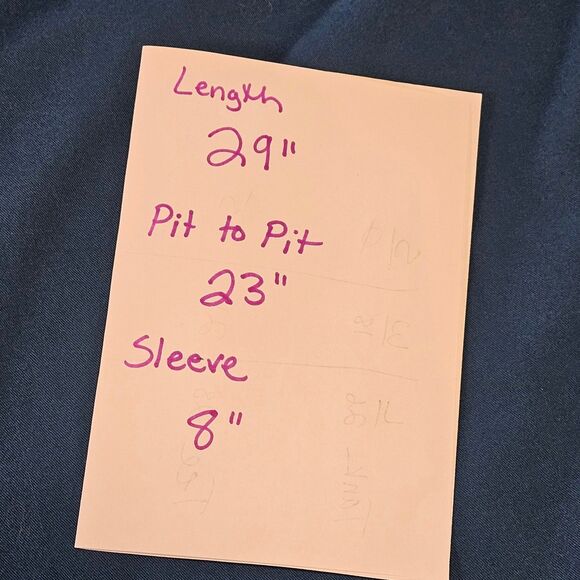 Length
29"
Pit to Pit
23"
Sleeve
8"